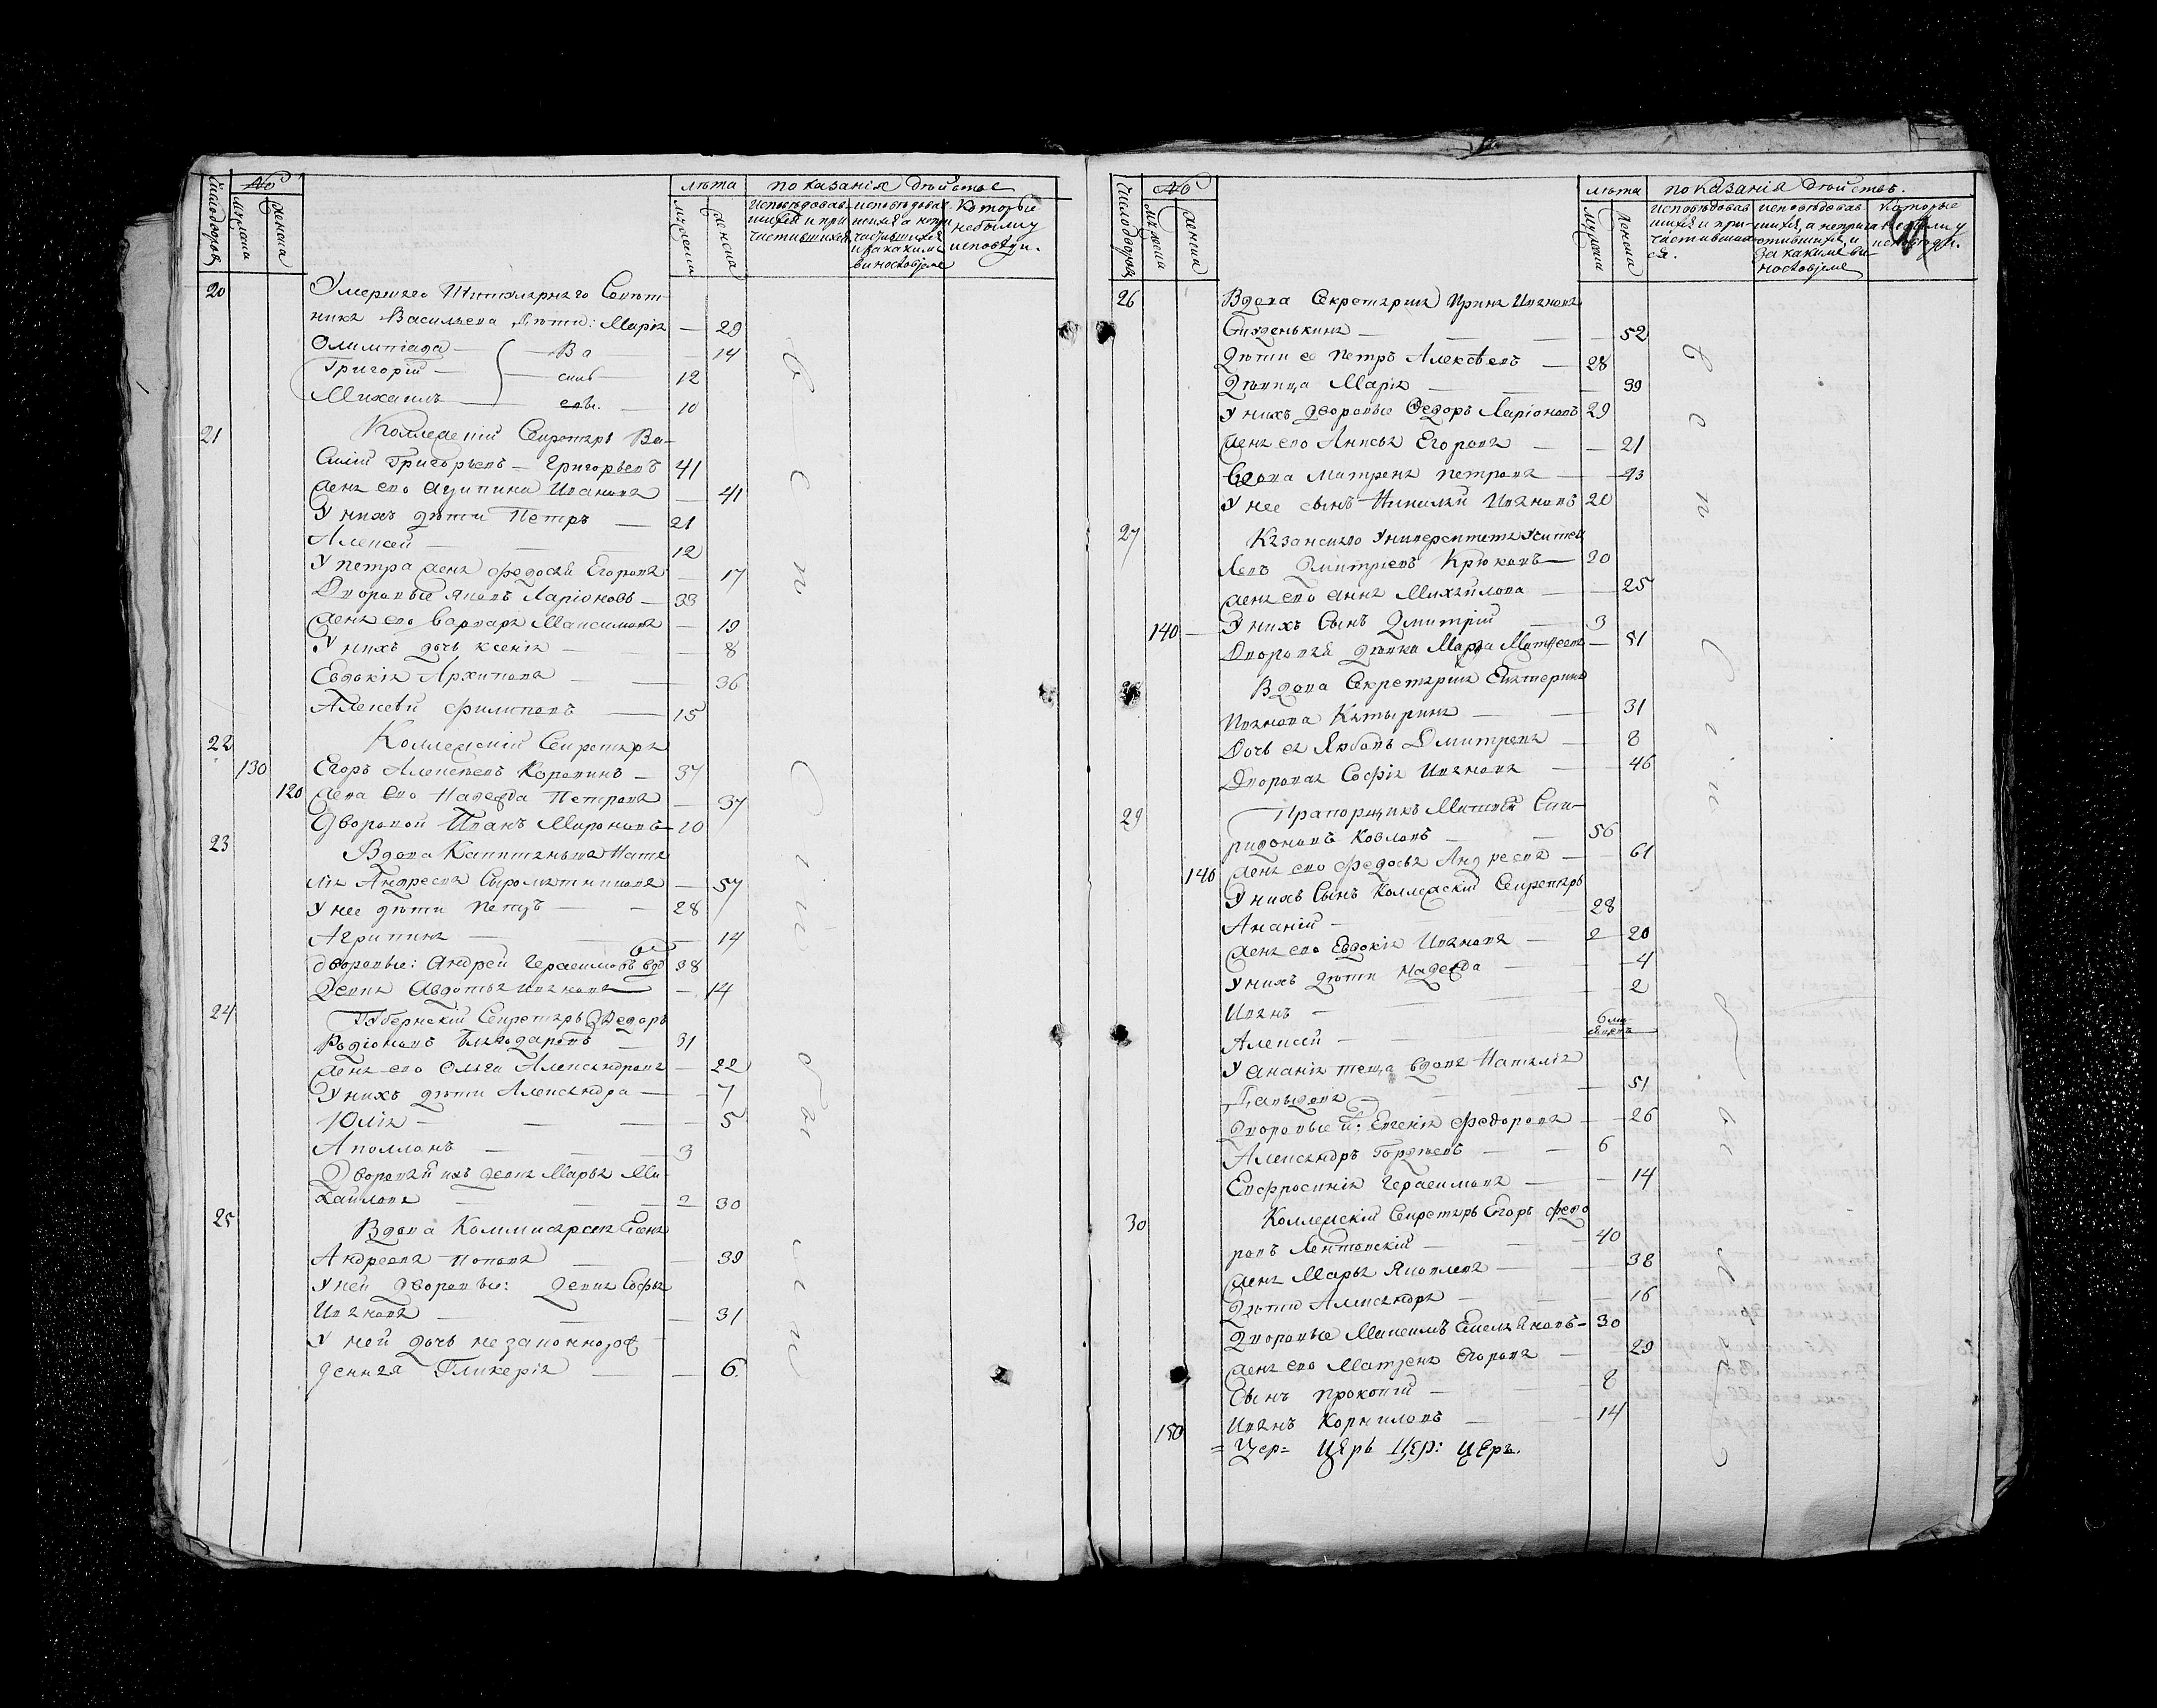 число дворовъ
№
мужеска
женска
лѣта
показанія дѣйствъ
мужеска
женска
исповѣдовав-
шихся и при-
частившихся
исповѣдовав-
шихся а непри-
частившихся
и за какимъ
виносло­віемъ
которые
небыли у
исповѣди.
20
Умершаго Титулярнаго Совѣт-
ника Васильева дѣти: Марія — 29
Олимпіада — Ва — 14
Григорій — силь 12
Михаилъ — евы. — 10
21
Коллежскій Секретарь Ва-
силій Григорьевъ — Григорьевъ 41
жена его Агрипина Иванова — 41
У нихъ дѣти Петръ — 21
Алексей — 12
У петра жена федосья Егорова — 17
Дворовые Яковъ Ларіоновъ — 33
жена его Варвара Максимова — 19
У нихъ дочь Ксенія — 8
Евдокія Архипова — 36
Алексѣй филиповъ — 15
22
Коллежскій Секретарь
130 Егоръ Алексѣевъ Коровинъ — 37
120 жена его Надежда Петрова — 37
Дворовой Иванъ Мироновъ — 20
23
Вдова Капитанша Ната
лія Андреева Сыромятникова — 57
У нее дѣти петръ — 28
Агрипина — 14
дворовые: Андрей Герасимовъ вдо 38
Девка Авдотья Иванова — 14
24
Губернскій Секретарь Федоръ
Родіоновъ Благодаровъ — 31
жена его Ольга Александрова — 22
У нихъ дѣти Александра — 7
Юлія — 5
Аполлонъ — 3
Дворовая ихъ девка Марья Ми-
хайлова — 2 30
25
Вдова Коммисарша Елена
Андреева попова — 39
У ней дворовые: девка Софья
Иванова — 31
У ней дочь незаконнорож
денная Гликерія — 6
число дворовъ
№
мужеска
женска
лѣта
показанія дѣйствъ.
мужеска
женска
исповѣдовав
шихся и при-
частивших
ся.
исповѣдовав
шихся, а неприча
стившихся, и
за какимъ ви-
нословіемъ
которые
небыли у
исповѣди.
26
Вдова Секретарша Ирина Иванова
— 52
дѣти ее петръ Алексѣевъ — 28
Дѣвица Марія — 39
У нихъ дворовые Федоръ Ларіоновъ 29
жена его Анисья Егорова — 21
вдова матрена петрова — 43
У нее сынъ Николай Ивановъ 20
27
Казанскаго Университета учител
Левъ Дмитріевъ Крюковъ — 20
жена его анна Михайлова — 25
140 У нихъ сынъ Дмитрій — 3
Дворовая дѣвка Марфа Матвеева — 51
28
Вдова Секретарша Екатерина
Иванова Катырина — 31
Дочь ея Любовь Дмитрева — 8
Дворовая Софія Иванова — 46
29
Прапорщикъ Матвей Спи-
ридоновъ Козловъ — 56
140 жена его федосья Андреева — 61
У нихъ Сынъ Коллежскій Секретарь
Ананій — 28
жена его Евдокія Иванова — 2 20
У нихъ дѣти надежда — 4
Иванъ — 2
Алексей — 6 мѣ
сяцевъ
У ананія теща вдова Наталія
Давыдова — 51
Дворовые: Евгенія федорова — 26
Александръ Гордѣевъ — 6
Евфросинія Герасимова — 14
30
Коллежскій Секретарь Егоръ федо
ровъ Лентовскій — 40
жена Марья Яковлева — 38
Дѣти Александра — 16
Дворовые Максимъ Емельяновъ — 30
жена его Матрена Егорова — 29
Сынъ прокопій — 8
150 Иванъ Корниловъ — 14
= Цер= Церь Цер: Церъ.